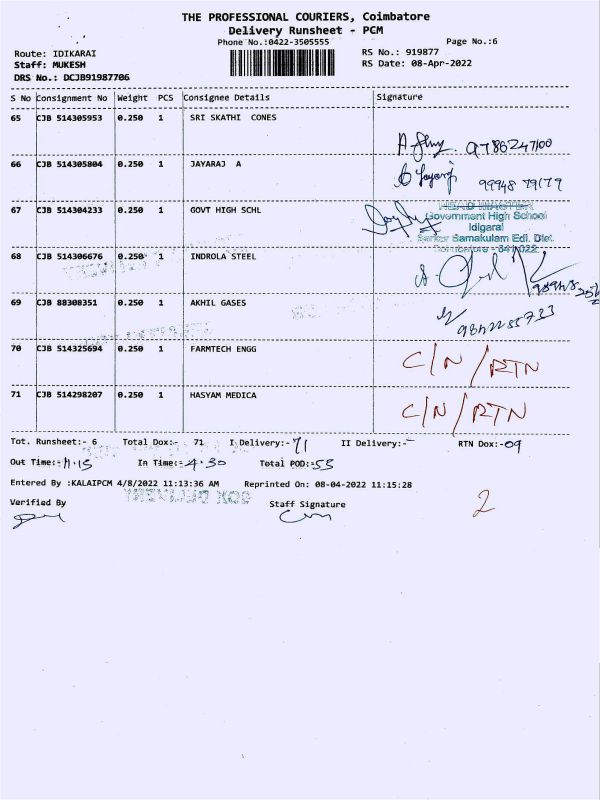 THE PROFESSIONAL COURIERS, Coimbatore
Delivery Runsheet - PCM
Phone No.:0422-3505555
Page No.:6
Route: IDIKARAI
RS No.: 919877
Staff: MUKESH
RS Date: 08-Apr-2022
DRS No.: DCJB91987706
S No Consignment No Weight PCS Consignee Details Signature
65 CJB 514305953 0.250 1 SRI SKATHI CONES
9786247100
66 CJB 514305804 0.250 1 JAYARAJ A
99948 79179
67 CJB 514304233 0.250 1 GOVT HIGH SCHL
HEAD MASTER
Government High School
Idigarai
Samakulam Edl. Dist.
Coimbatore - 641 022
68 CJB 514306676 0.250 1 INDROLA STEEL
69 CJB 88308351 0.250 1 AKHIL GASES
70 CJB 514325694 0.250 1 FARMTECH ENGG C/N/RTN
71 CJB 514298207 0.250 1 HASYAM MEDICA C/N/RTN
Tot. Runsheet:- 6 Total Dox:- 71 I Delivery:- 71 II Delivery:- RTN Dox:- 09
Out Time:- 11.15 In Time:- 4.30 Total POD:- 55
Entered By :KALAIPCM 4/8/2022 11:13:36 AM Reprinted On: 08-04-2022 11:15:28
Verified By Staff Signature
2